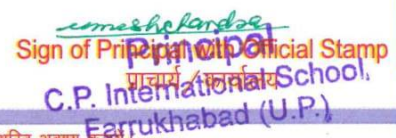 umeshchandra
Sign of Principal with Official Stamp
principal
प्राचार्य / कार्यालय
C.P. International School,
Farrukhabad (U.P.)